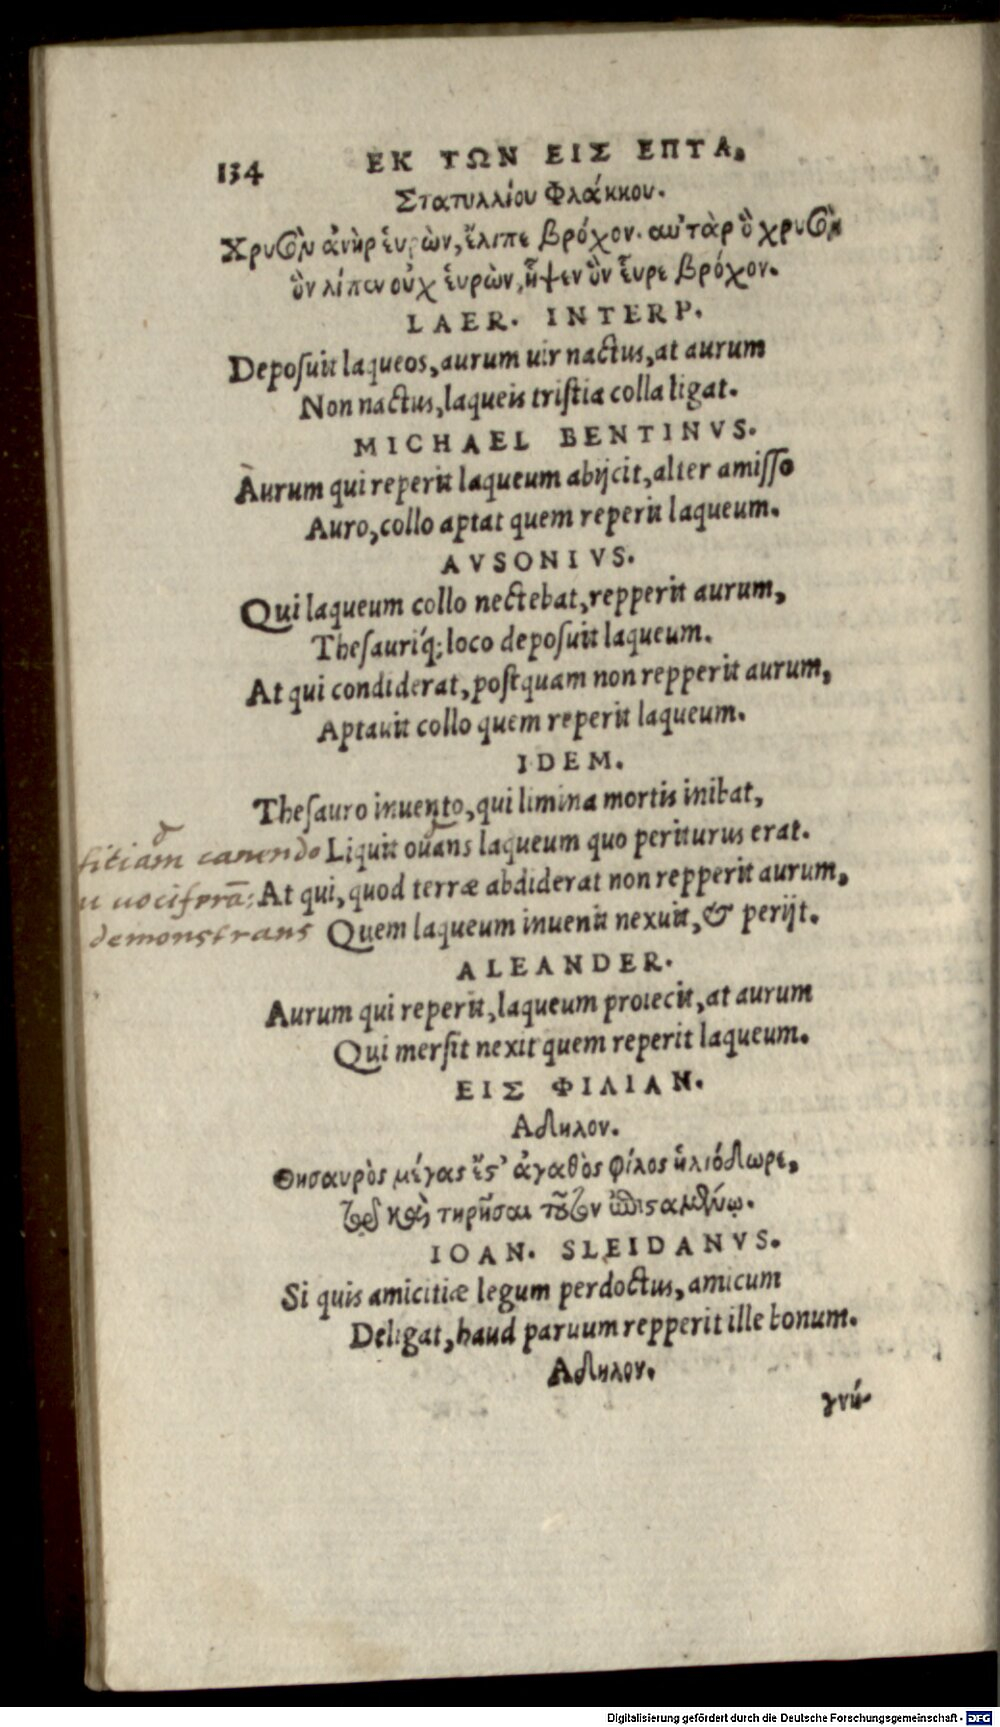 134 ΕΚ ΤΩΝ ΕΙΣ ΕΠΤΑ.
Στατυλλίου Φλάκκου.
Χρυσὸν ἀνὴρ ἑυρὼν, ἔλιπε βρόχον. αὐτὰρ ὃ χρυσὸν
ὃν λίπεν οὐχ ἑυρὼν, ἧψεν ὃν εὗρε βρόχον.
LAER. INTERP.
Deposuit laqueos, aurum uir nactus, at aurum
Non nactus, laqueis tristia colla ligat.
MICHAEL BENTINVS.
Aurum qui reperit laqueum abijcit, alter amisso
Auro, collo aptat quem reperit laqueum.
AVSONIVS.
Qui laqueum collo nectebat, repperit aurum,
Thesauriq́; loco deposuit laqueum.
At qui condiderat, postquam non repperit aurum,
Aptauit collo quem reperit laqueum.
IDEM.
Thesauro inuento, qui limina mortis inibat,
fitiam canendo Liquit ouans laqueum quo periturus erat.
u uociferã: At qui, quod terræ abdiderat non repperit aurum,
demonstrans Quem laqueum inuenit nexuit, & perijt.
ALEANDER.
Aurum qui reperit, laqueum proiecit, at aurum
Qui mersit nexit quem reperit laqueum.
ΕΙΣ ΦΙΛΙΑΝ.
Αδηλον.
Θησαυρὸς μέγας ἔστ' ἀγαθὸς φίλος ἡλιόδωρε,
τῷ καὶ τηρῆσαι τοῦτον ἐπισταμένῳ.
IOAN. SLEIDANVS.
Si quis amicitiæ legum perdoctus, amicum
Deligat, haud paruum repperit ille bonum.
Αδηλον.
γνώ-
Digitalisierung gefördert durch die Deutsche Forschungsgemeinschaft - DFG